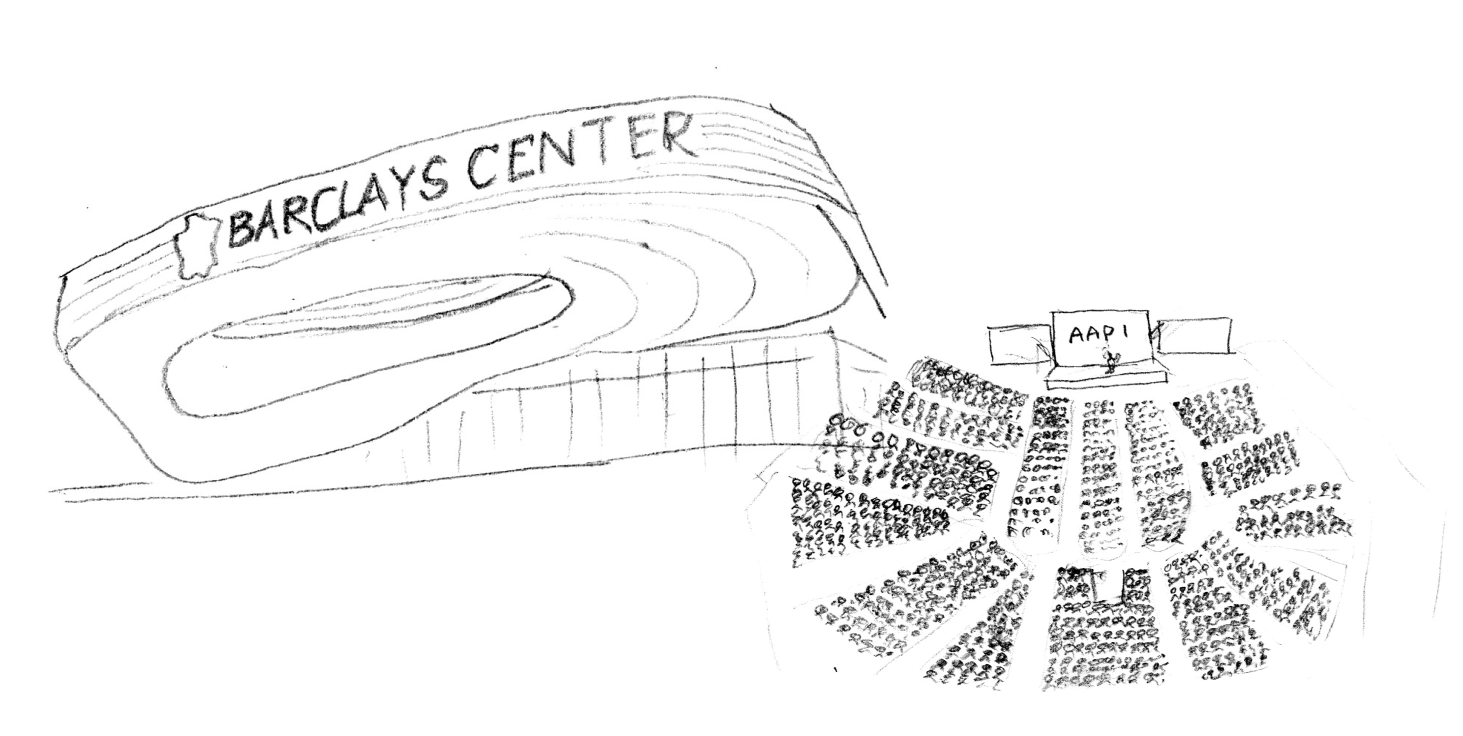 BARCLAYS CENTER
AAPI